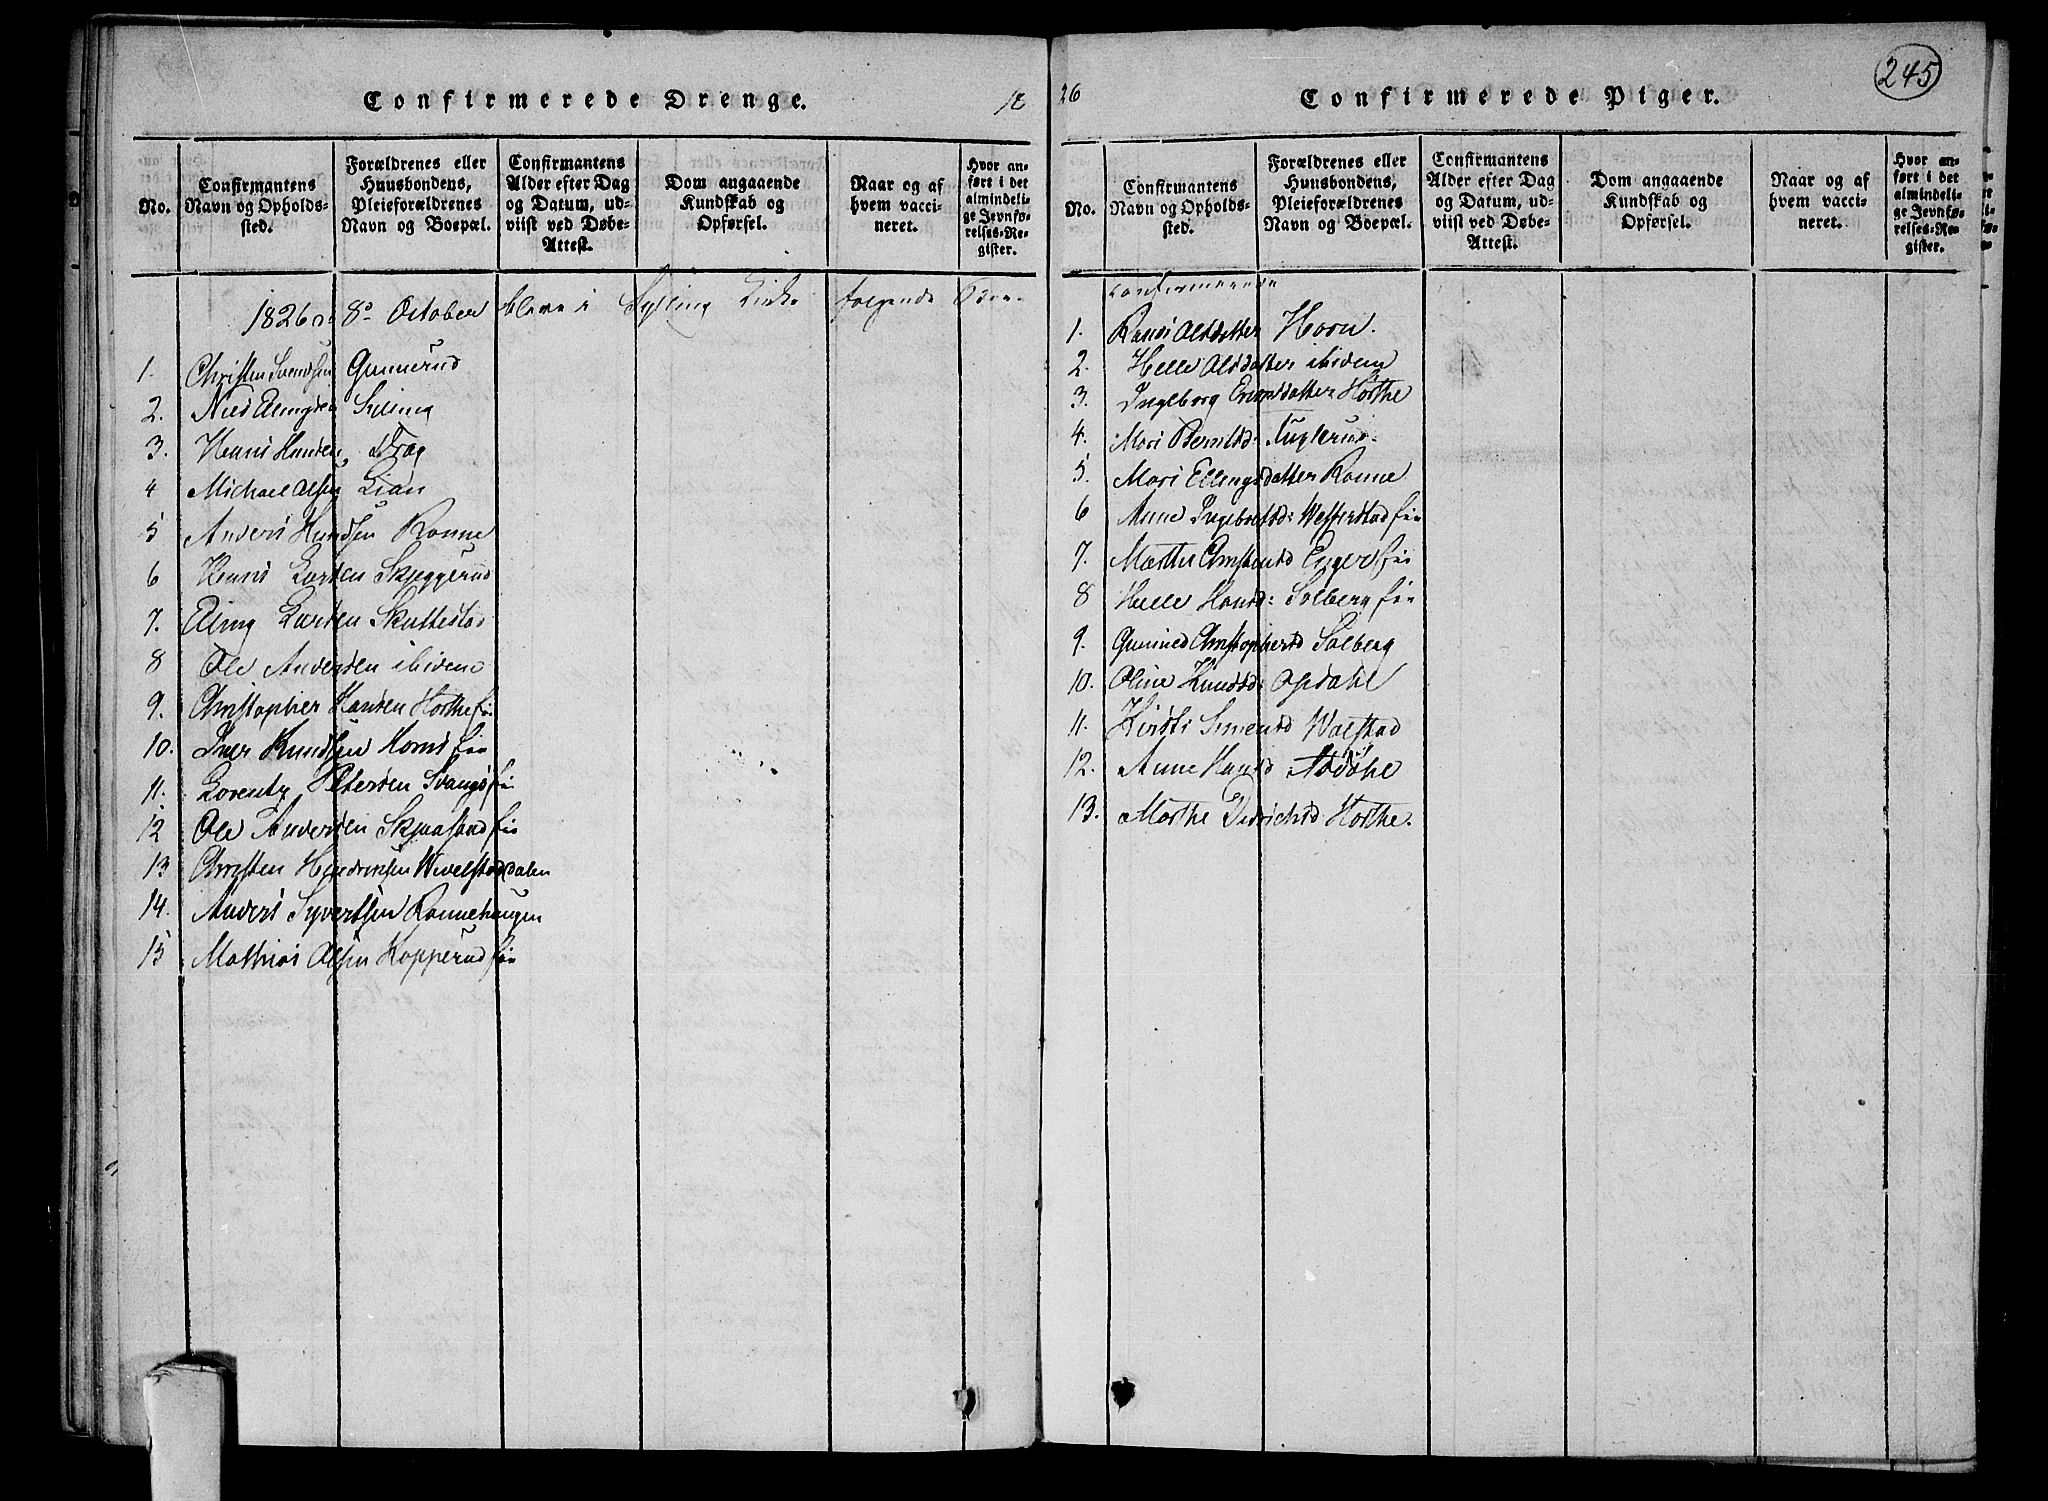 Confirmerede Drenge.
18
No.
Confirmantens Navn og Opholds-sted.
Forældrenes eller Huusbondens, Pleieforældrenes Navn og Boepæl.
Confirmantens Alder efter Dag og Datum, ud-viist ved Døbe-Attest.
Dom angaaende Kundskab og Opførsel.
Naar og af hvem vacci-neret.
Hvor an-ført i det almindeli-ge Jevnfø-relses-Re-gister.
1826 8de October bleve i Sylling Kirke følgende Børn
1. Christen Svendsen Gunnerud
2. Niels Elingsen Sylling
3. Hans Hansen
4 Michael Olsen Lian
5 Anders Knudsen Ronne
6 Hans Larsen Skjeggerud
7. Eling Larsen Skuttestad
8 Ole Andersen ibidem
9. Christopher Hansen Horthe
10. Iver Knudsen Horns
11. Lorentz Petersen Svangs
12 Ole Andersen
13 Christen Hendrichsen Wivelstaddalen
14. Anders Syvertsen Ronnehaugen
15 Mathias Olsen Kopperud
26
Confirmerede Piger.
245
No.
Confirmantens Navn og Opholds-sted.
Forældrenes eller Huusbondens, Pleieforældrenes Navn og Boepæl.
Confirmantens Alder efter Dag og Datum, ud-viist ved Døbe-Attest.
Dom angaaende Kundskab og Opførsel.
Naar og af hvem vacci-neret.
Hvor an-ført i det almindeli-ge Jevnfø-relses-Re-gister.
confirmerede
1. Olsdatter Horn.
2. Helle Olsdatter ibidem
3. Ingeborg Horthe
4. Mari Berntsd:
5. Mari Ellingsdatter Ronne
6 Anne Ingebretsd:
7. Marthe Christensd Enger
8 Helle Hansd: Solberg
9. Gunnild Christophersd Solberg
10. Oline Knudsd: Opdahl
11. Kirsti Simensd Walstad
12. Anne Hansd
13. Marthe Didrichsd Horthe.